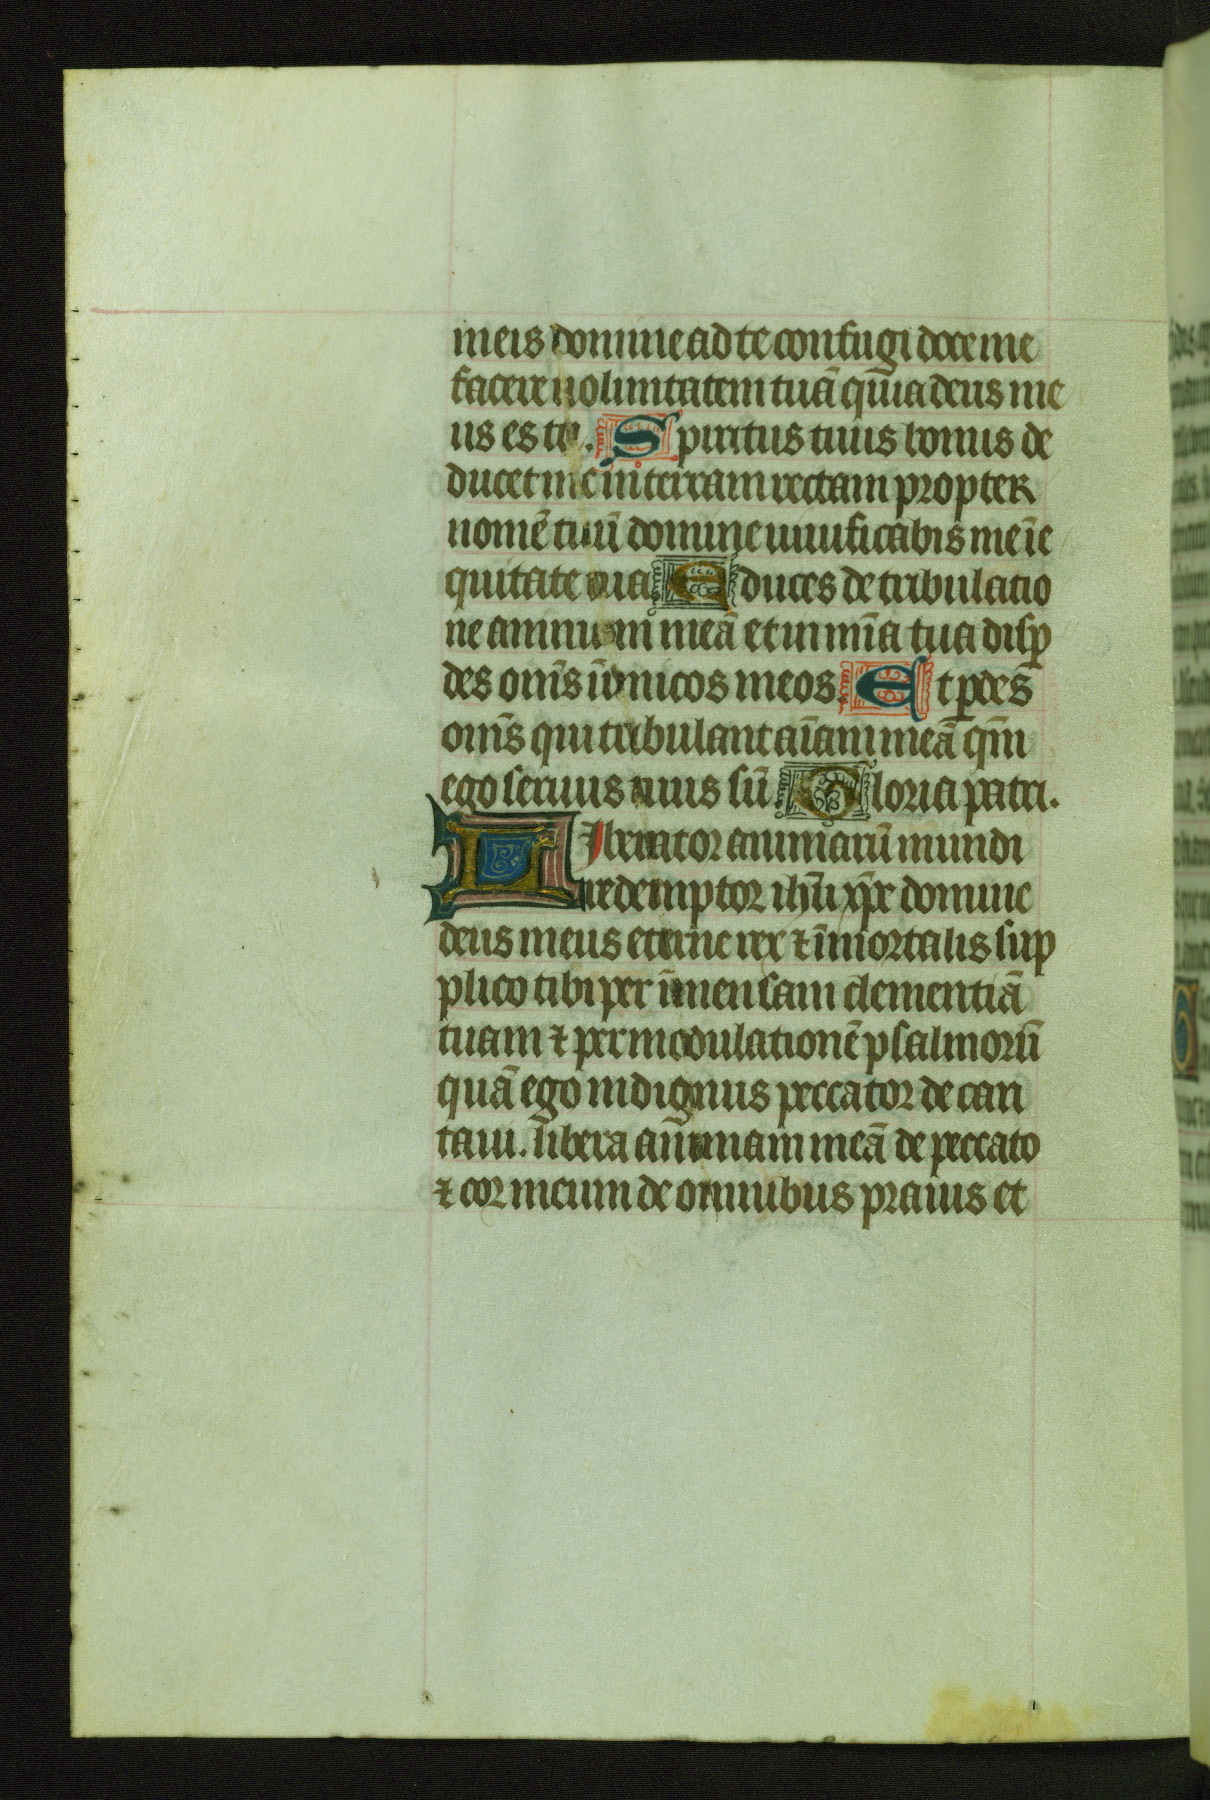 meis domine ad te confugi doce me
facere uoluntatem tuā qūia deus me
us es tu. Spiritus tuus bonus de
ducet me in terram rectam propter
nomē tuū domine uiuificabis me ī e
quitate tua Educes de tribulatio
ne animam meā et in mīa tua disp̱
des oīns īimicos meos. Et ꝑdes
oīns qui tribulant aīam meā qm̄
ego seruus tuus sū. Gloria patri.
Liberator animarū mundi
redemptor ihū xp̄e domine
deus meus eterne rex ⁊ īmortalis sup
plico tibi per īmensam clementiā
tuam ⁊ per modulationē psalmorū
quā ego indignus peccator decan
taui. libera animam meā de peccato
⁊ cor meum de omnibus prauis et